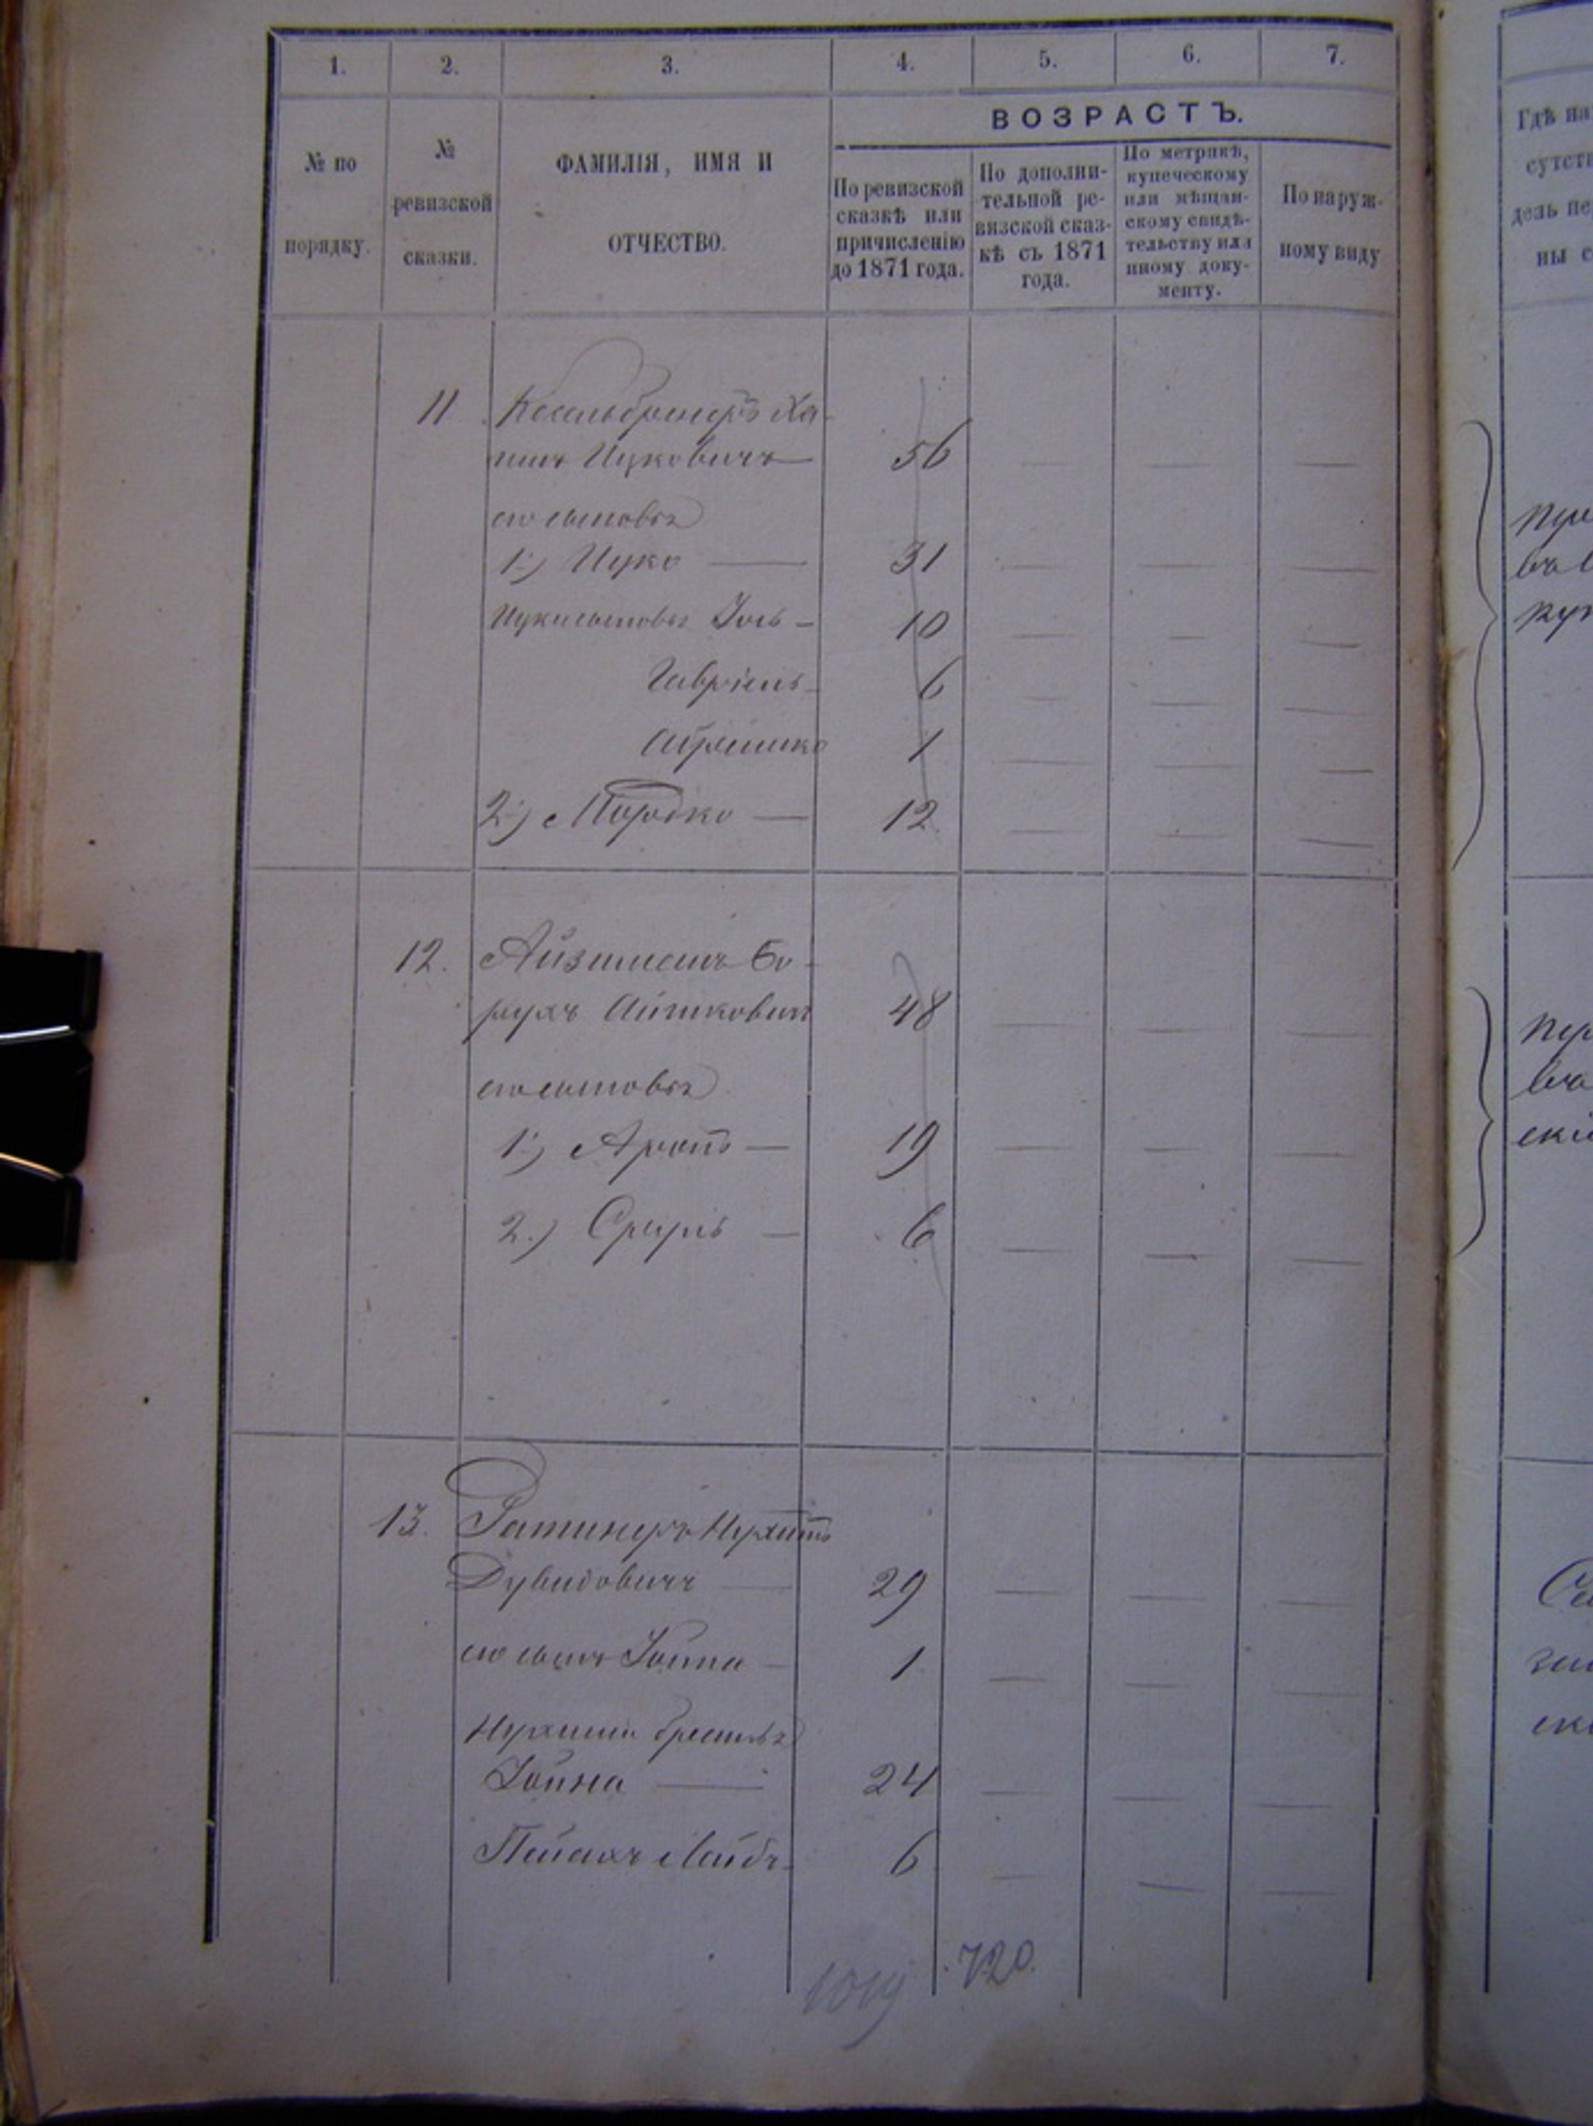 1. 2. 3. 4. 5. 6. 7.
№ по порядку.
№ ревизской сказки.
ФАМИЛІЯ, ИМЯ И ОТЧЕСТВО.
ВОЗРАСТЪ.
По ревизской
сказкѣ или
причисленію
до 1871 года.
По дополни-
тельной ре-
визской сказ-
кѣ съ 1871
года.
По метрикѣ,
купеческому
или мѣщан-
скому свидѣ-
тельству или
иному доку-
менту.
По наруж-
ному виду
Гдѣ на
сутств
дѣль пе
ны с
11 Ха-
Ицковичъ — 56 — — —
его сыновья
1.) Ицко — 31 — — —
Ицки сыновья Іось — 10 — — —
Гавріель — 6 — — —
Абрамко 1 — — —
2.) Мордко — 12 — — —
12. Айзишъ Бо-
рухъ Айзиковичъ 48 — — —
его сыновья
1.) Аронъ — 19 — — —
2.) Сруль — 6 — — —
13. Ратинеръ Нухимъ
Дувидовичъ — 29 — — —
его сынъ Іойна — 1 — — —
Нухима братья
Іойна — 24 — — —
Пейсахъ Лейбъ — 6 — — —
1019 720